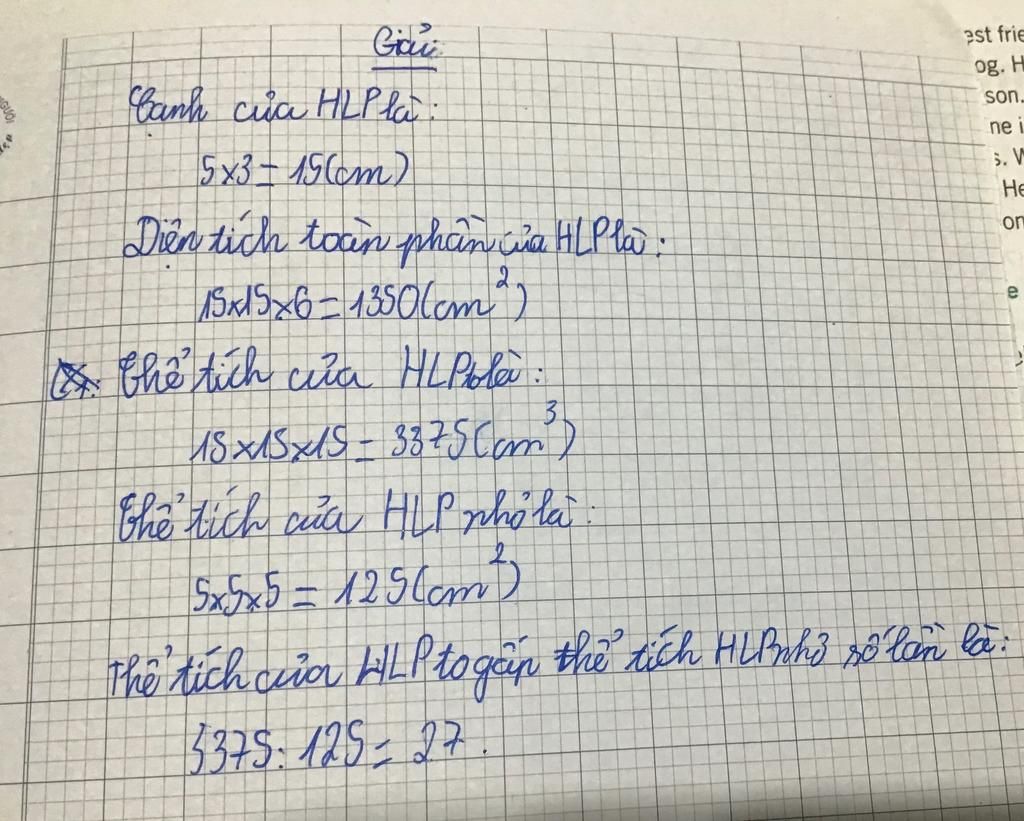 Giải
Cạnh của HLP là:
5x3 = 15(cm)
Diện tích toàn phần của HLP là:
15x15x6 = 1350(cm²)
Thể tích của HLP là:
15x15x15 = 3375(cm³)
Thể tích của HLP nhỏ là:
5x5x5 = 125(cm²)
Thể tích của HLP to gấp thể tích HLP nhỏ số lần là:
3375: 125 = 27.
est frie
og. H
son.
ne i
s. W
He
on
e
NGƯỜI